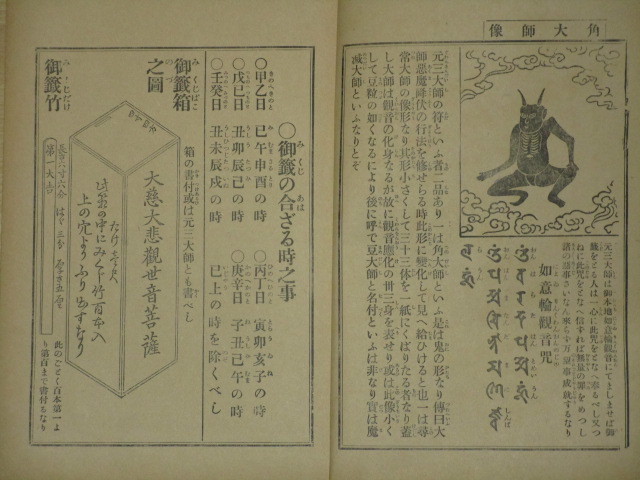 角大師像
元三大師は御本地如意輪觀音にてましませば御
籤をとる人は一心に此呪をとなへ奉るべし又つ
ねに此呪をとなへ信ずれば無量の罪をめつし
諸の惡事さいなん來らず万の善事成就するなり
如意輪觀音呪
元三大師の符といふ者二品あり一は角大師といふ是は鬼の形なり傳曰大
師惡魔降伏の行法を修せらる時此形に變化して見へ給ひけると也一は尋
常大師の像形なり其形小さくして三十三体を一紙にくばりたる者なり蓋
し大師は觀音の化身なるが故に觀音應化の卅三身を表せり或は此像小く
して豆粒の如くなるにより後に呼で豆大師と名付といふは非なり實は魔
滅大師といふなりとぞ
○御籤の合ざる時之事
○甲乙日 巳午申酉の時 ○丙丁日 寅卯亥子の時
○戊己日 丑卯辰巳の時 ○庚辛日 子丑己午の時
○壬癸日 丑未辰戌の時 已上の時を除くべし
御籤箱之圖
箱の書付或は元三大師とも書べし
大慈大悲觀世音菩薩
此箱の中にみくじ竹百本入
上の穴よりふり出すなり
御籤竹
長さ六寸六分 はゞ三分
第一大吉
此のごとく百本第一よ
り第百まで書付るなり